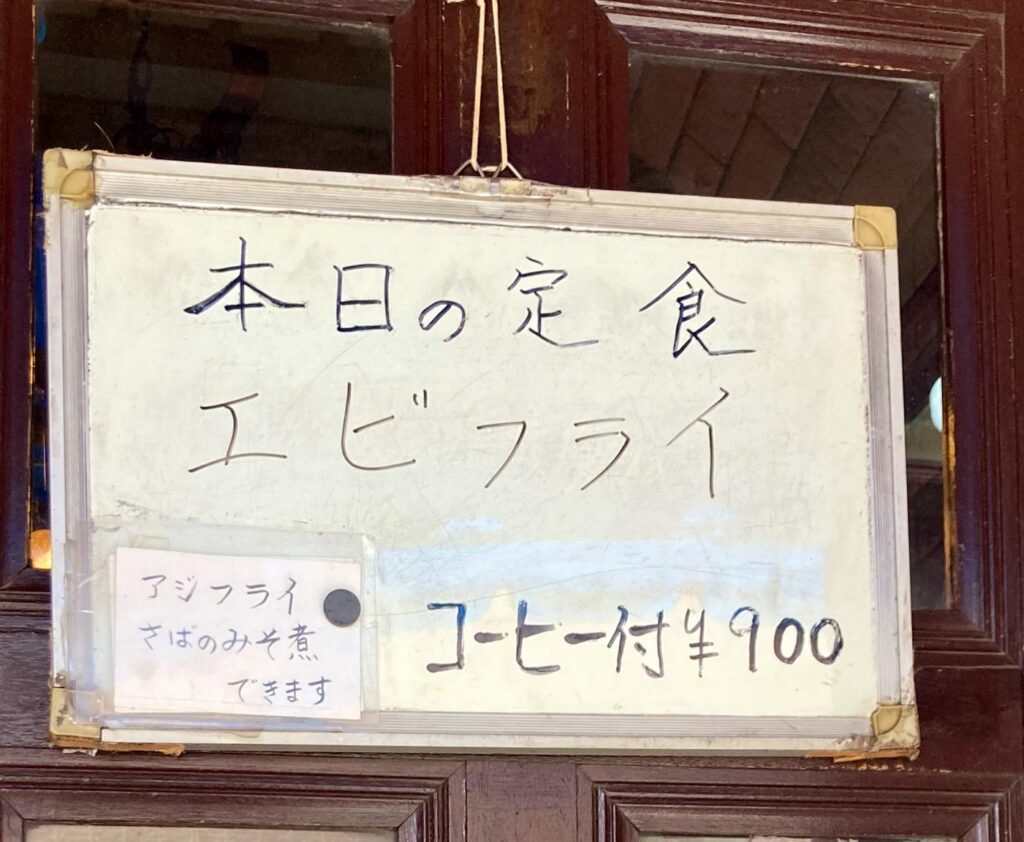 本日の定食
エビフライ
アジフライ
さばのみそ煮
できます
コーヒー付¥900